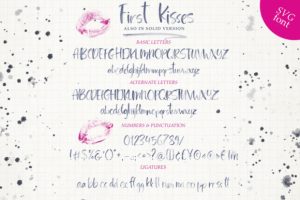 First Kisses
ALSO IN SOLID VERSION
SVG
font
BASIC LETTERS
ABCDEFGHIJKLMNOPQRSTUVWXYZ
abcdefghijklmnopqrstuvwxyz
ALTERNATE LETTERS
ABCDEFGHIJKLMNOPQRSTUVWXYZ
abcdefghijklmnopqrstuvwxyz
NUMBERS & PUNCTUATION
0123456789
LIGATURES